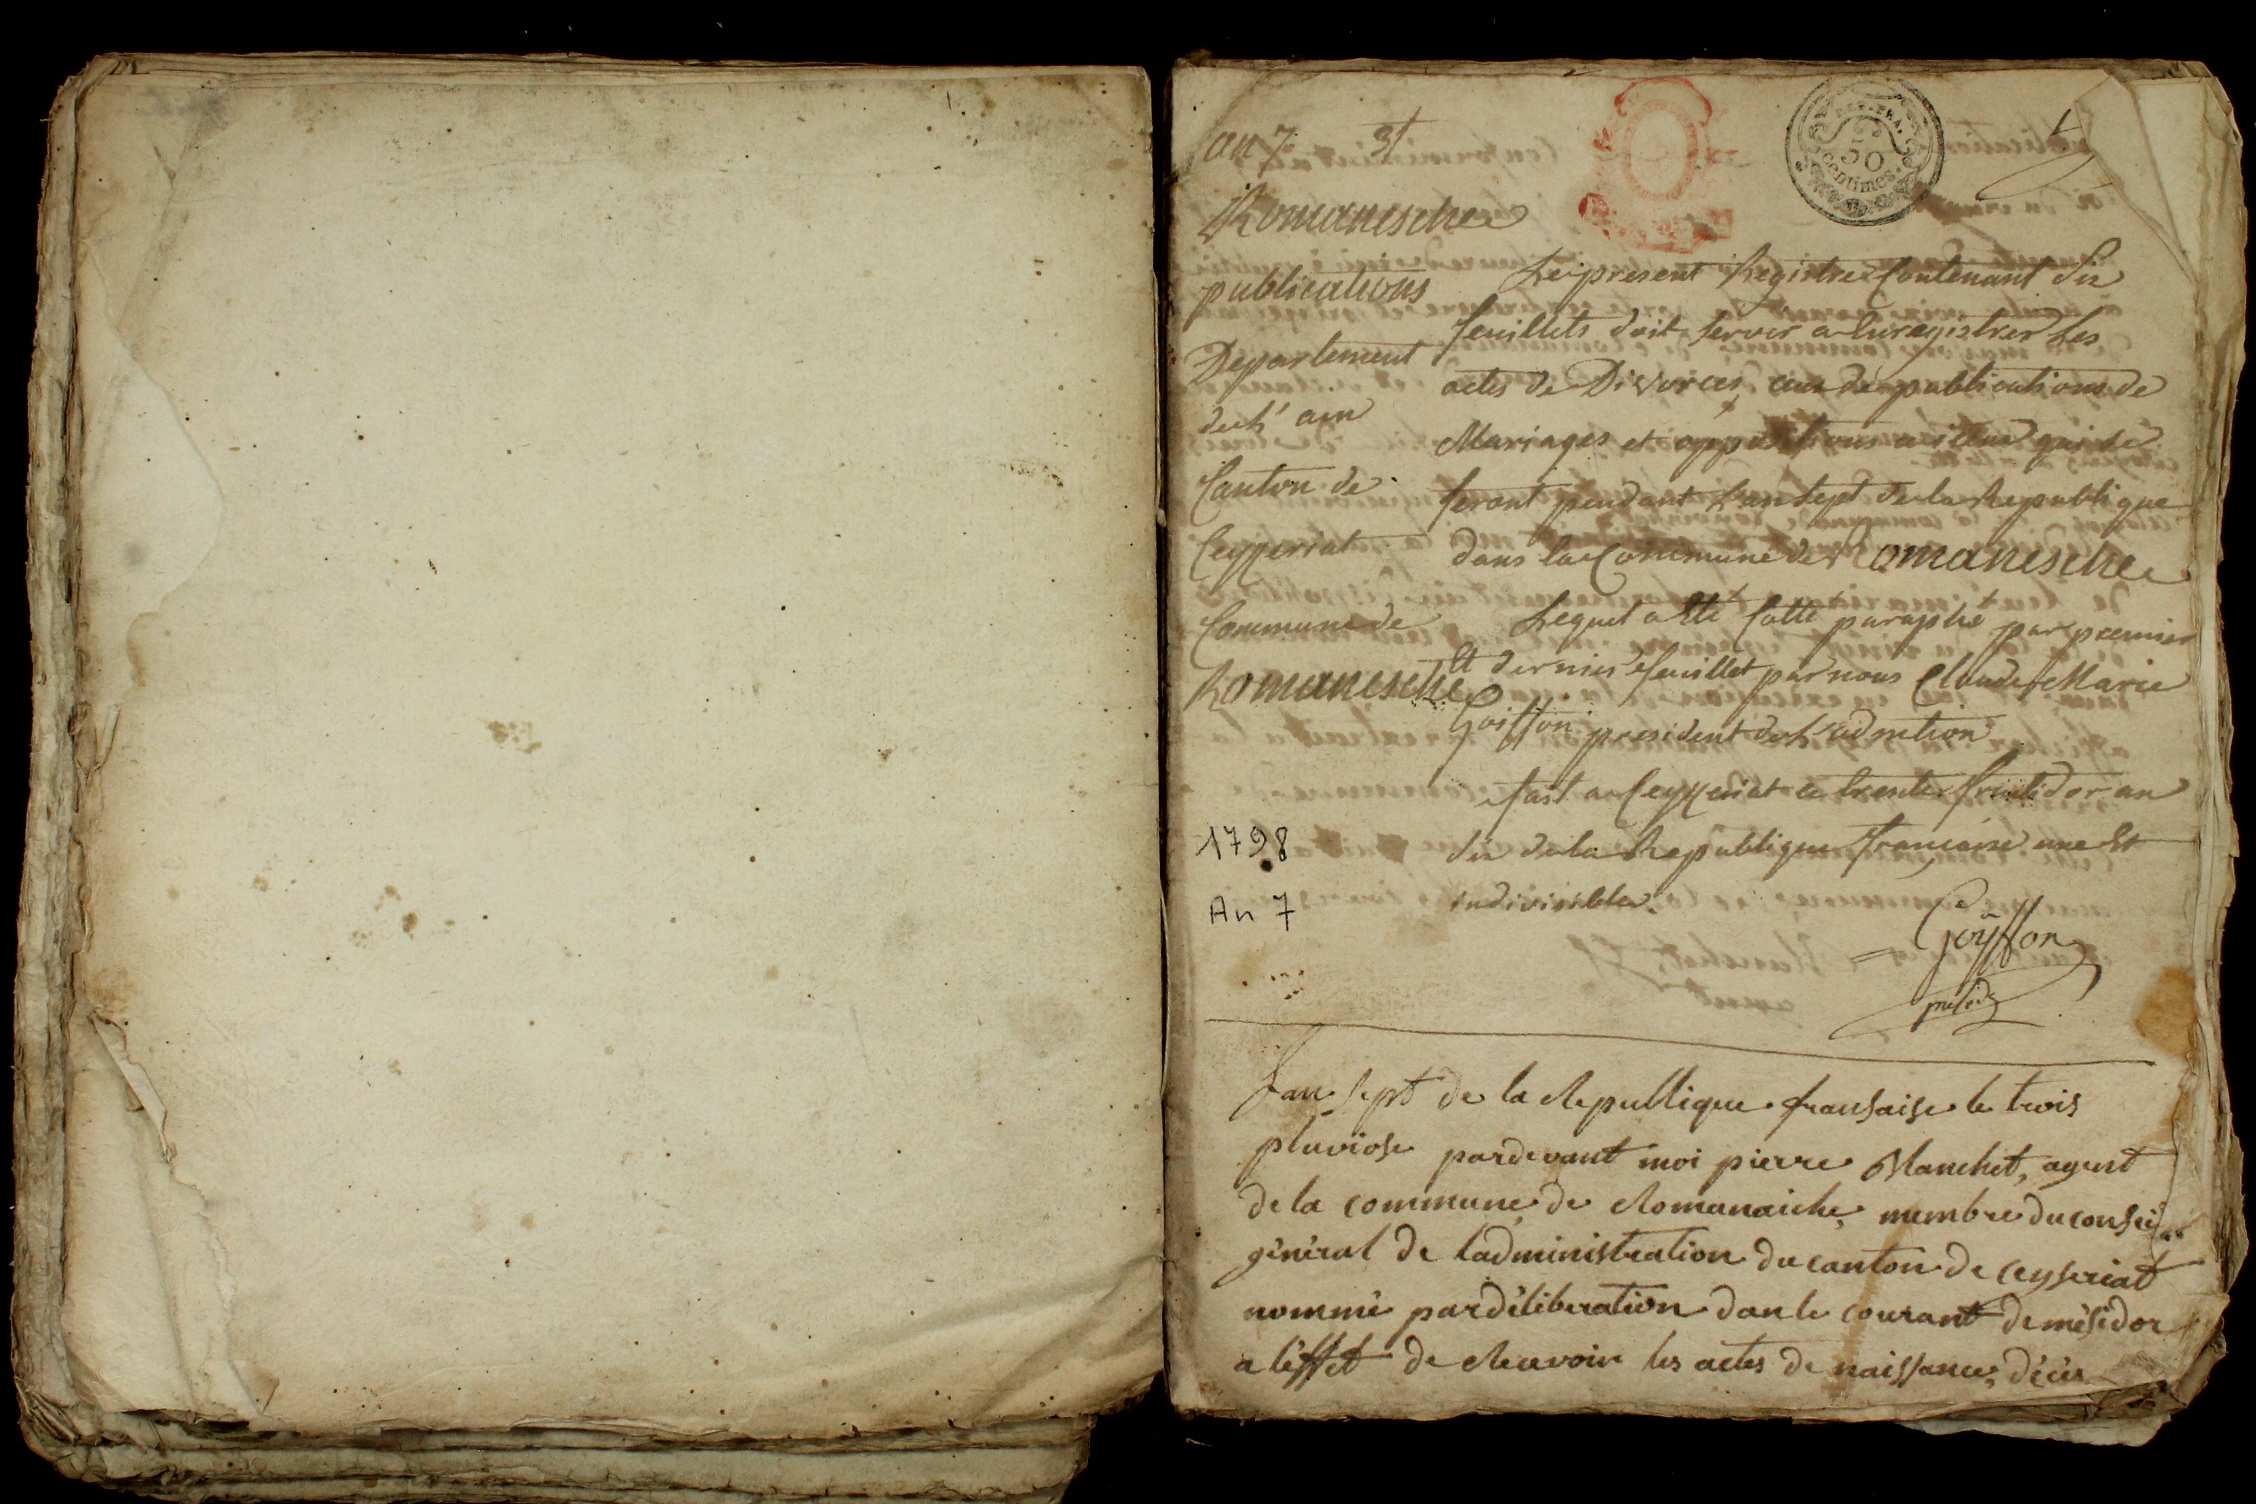 an 7
Romanesche
publications
Departement
de l'ain
Canton de
Ceyzeriat
Commune de
Romanesche
1798
An 7
REP. FRA.
50
Centimes
Le present Registre Contenant Six
feuillets doit servir a Enregistrer Les
actes de Divorces, ceux de publications de
Mariages et oppositions a iceux qui se
feront pendant L'an Sept de la Republique
dans la Commune de Romanesche
Lequel a Eté Cotté paraphé par premier
Et dernier feuillet par nous Claude Marie
Goiffon president de L'admtion
fait a Ceyzeriat ce trente fructidor an
Six de la Republique francaise une Et
indivisible.
Goÿffon
presidt
Lan Sept de la Republique fransaise le trois
pluviose pardevant moi pierre Manchet, agent
de la commune de Romanaiche membre du conseil
général de ladministration du canton de ceyseriat
nommé par déliberation dan le courant de mésidor
a léffet de Recevoir les actes de naissance, décès